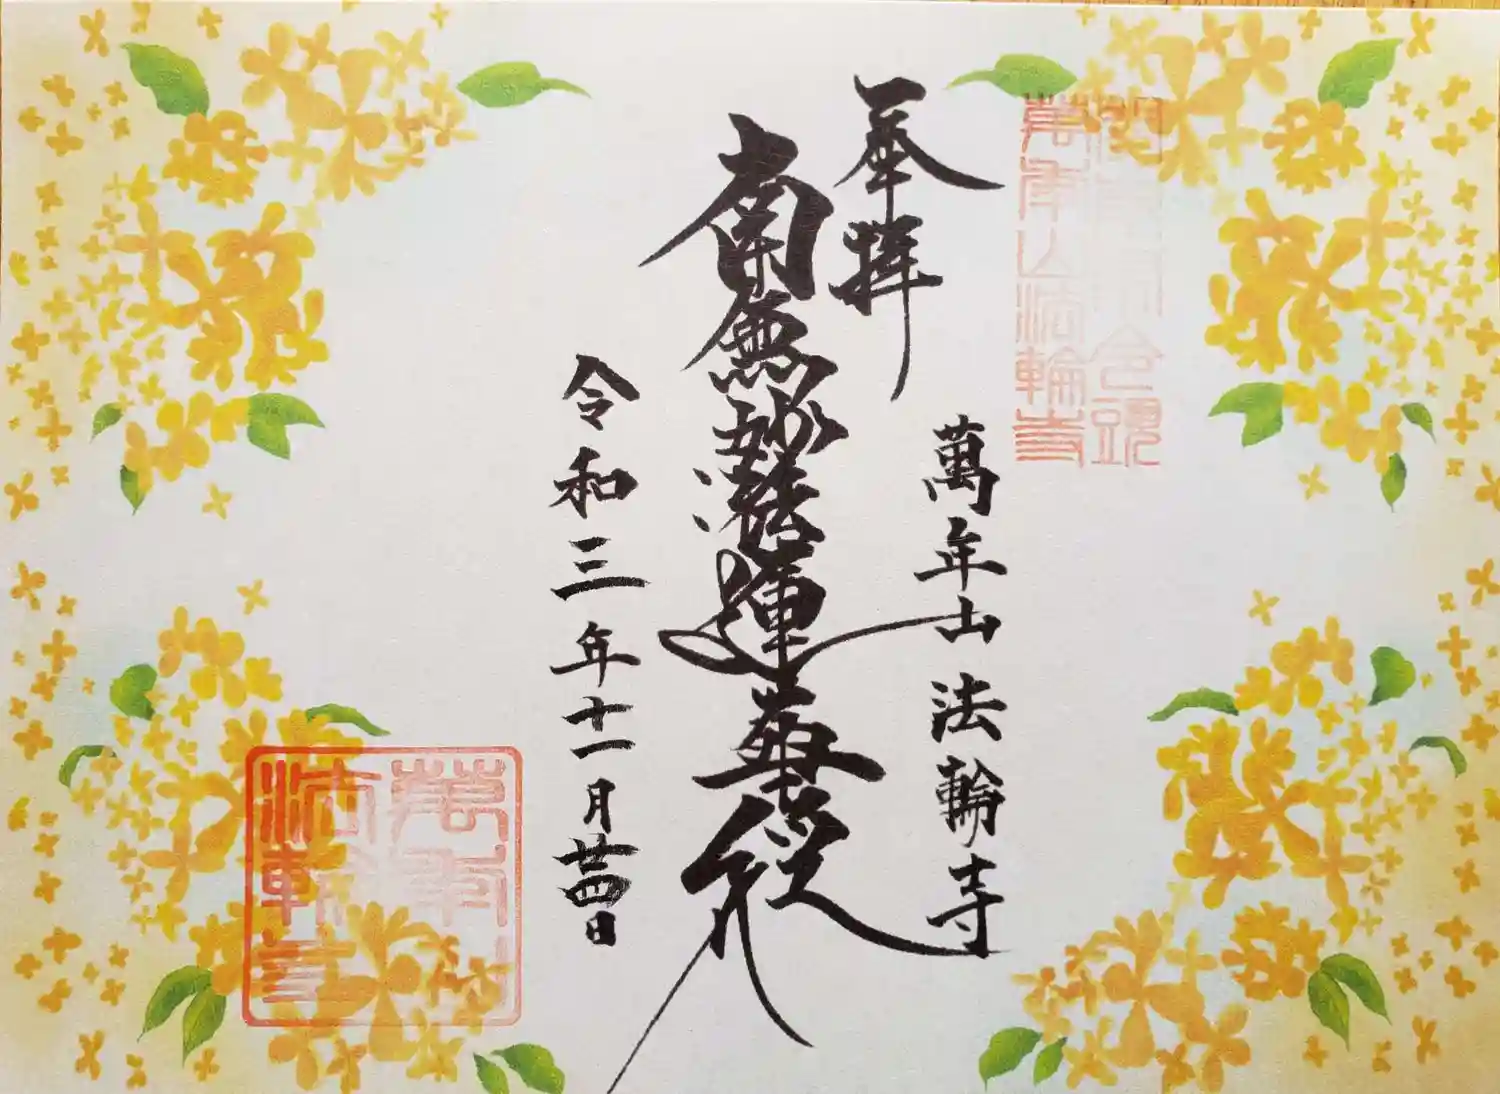 萬年山法輪寺
奉拝
萬年山法輪寺
南無妙法蓮華経
令和三年十一月廿四日
萬年山
法輪寺